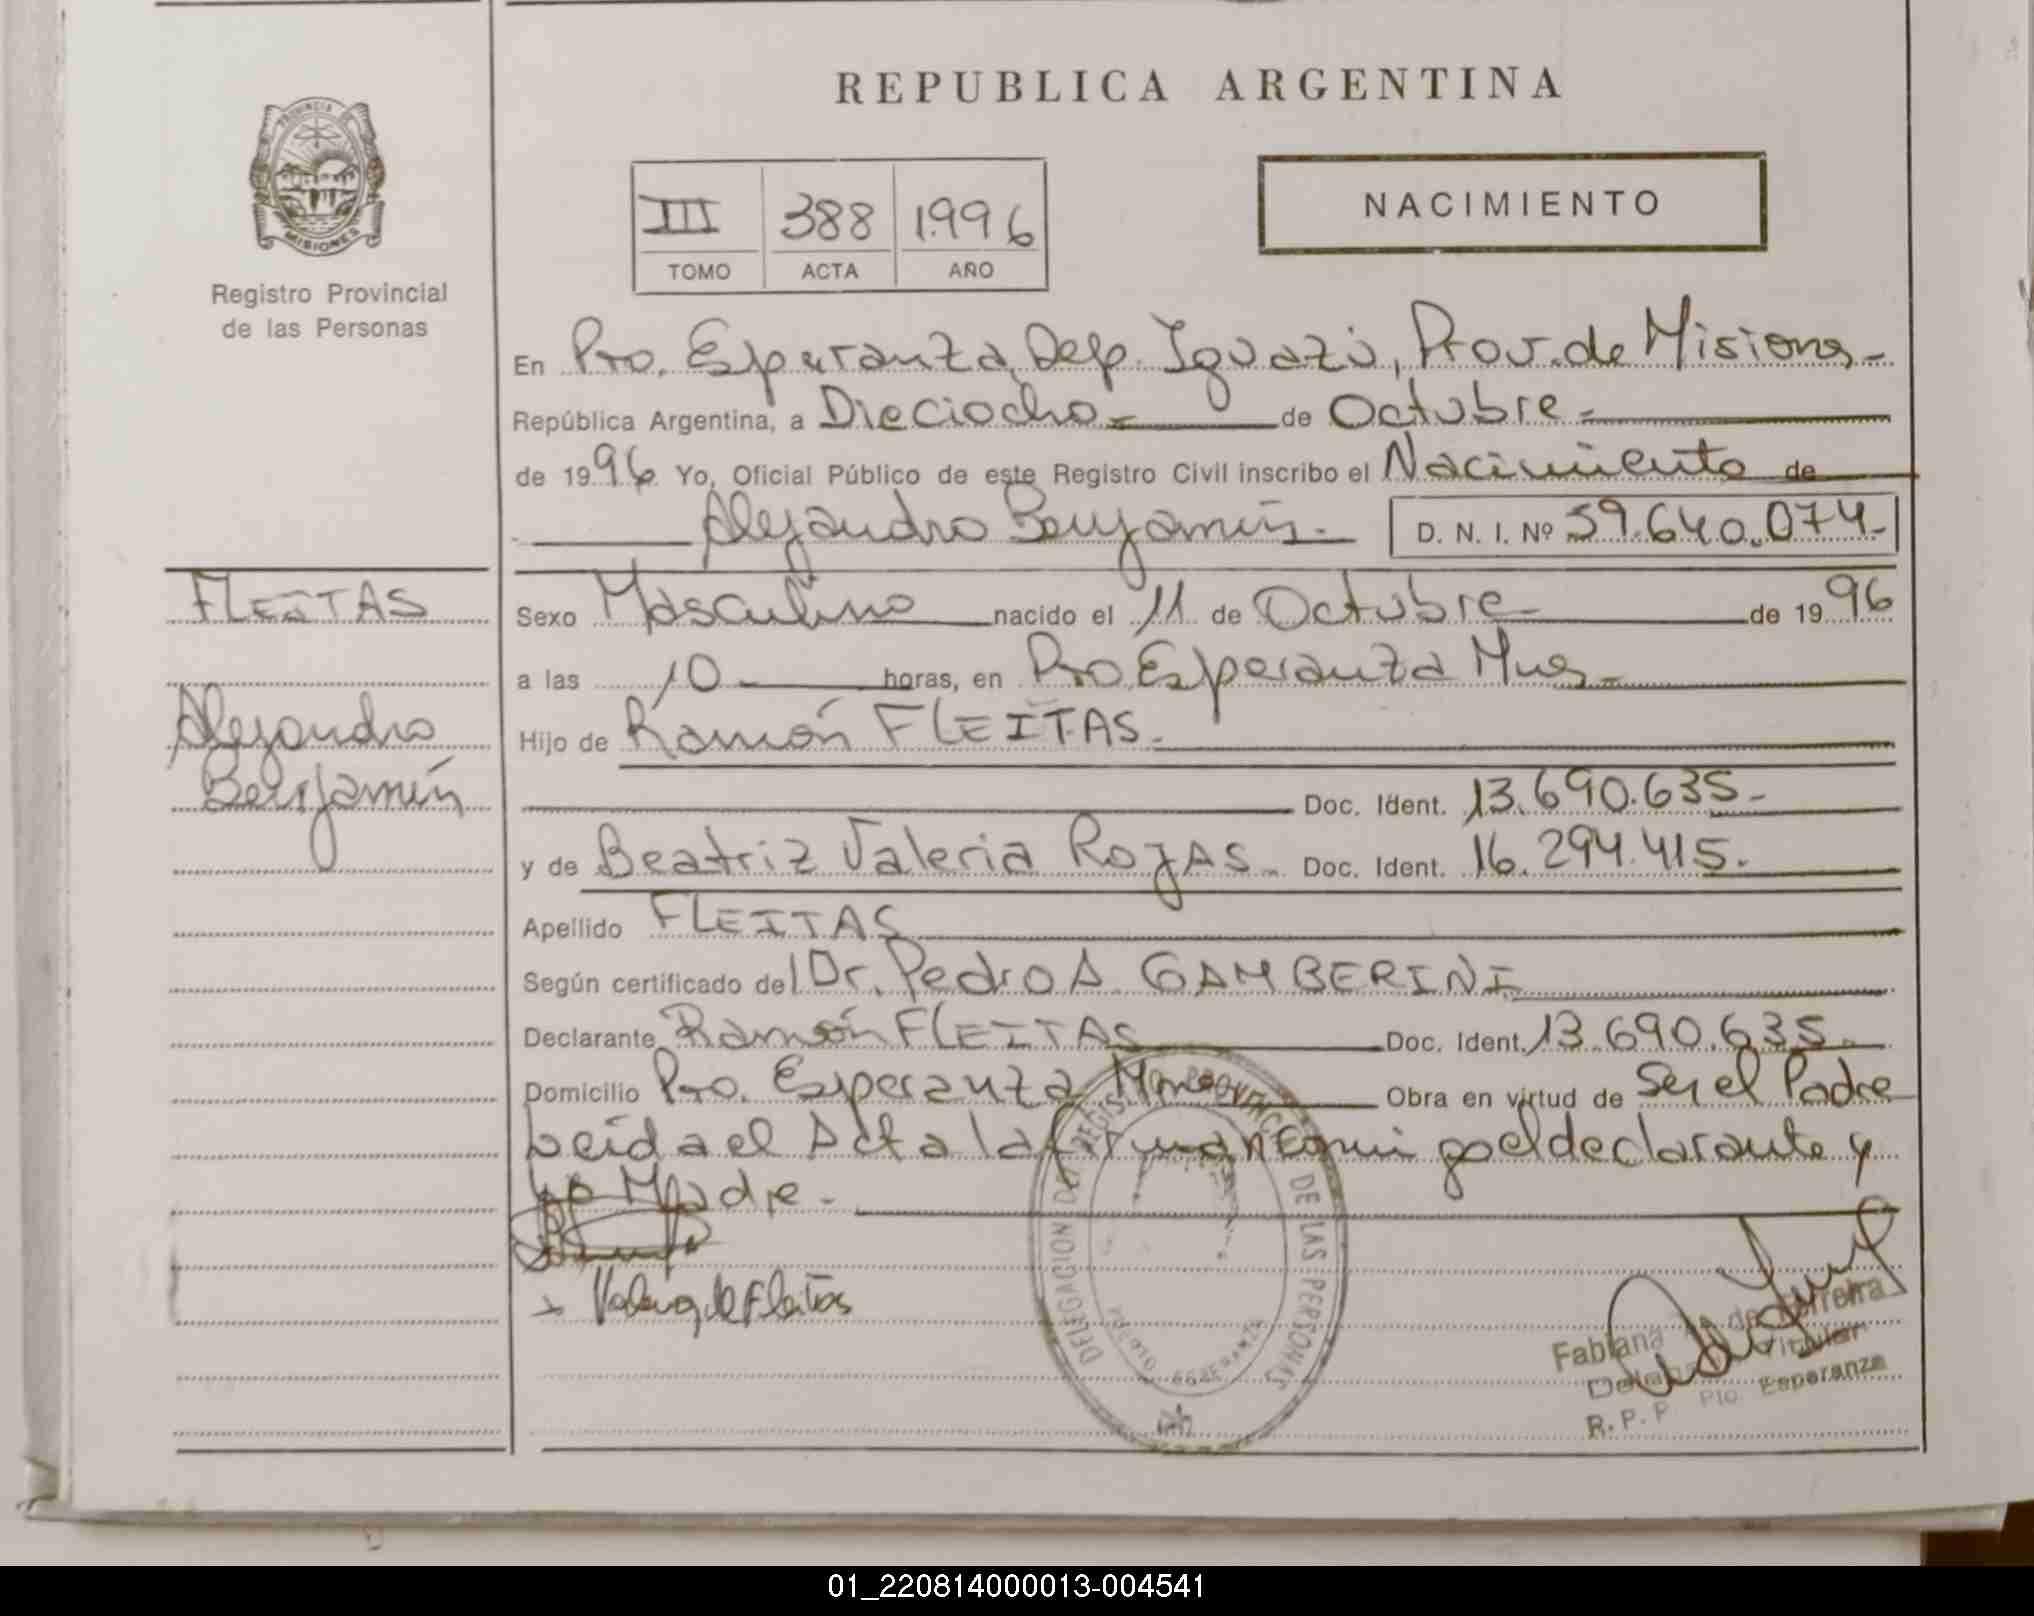 REPUBLICA ARGENTINA
PROVINCIA DE
MISIONES
Registro Provincial
de las Personas
III 388 1.996
TOMO ACTA AÑO
NACIMIENTO
En Pto. Esperanza, Dep. Iguazú, Prov. de Misiones-
República Argentina, a Dieciocho- de Octubre-
de 1996 Yo, Oficial Público de este Registro Civil inscribo el Nacimiento de
Alejandro Benjamín- D. N. I. Nº 39.640.074-
FLEITAS
Alejandro
Benjamín
Sexo Masculino nacido el 11 de Octubre- de 1996
a las 10- horas, en Pto Esperanza Mnes-
Hijo de Ramón FLEITAS.-
Doc. Ident. 13.690.635-
y de Beatriz Valeria ROJAS- Doc. Ident. 16.294.415.
Apellido FLEITAS
Según certificado del Dr. Pedro A GAMBERINI
Declarante Ramón FLEITAS Doc. Ident. 13.690.635-
Domicilio Pto. Esperanza Mnes Obra en virtud de Ser el Padre
Leída el Acta la firman conmigo el declarante y
la Madre-
Valeria de Fleitas
DELEGACION DEL REGISTRO PROVINCIAL DE LAS PERSONAS
PUERTO ESPERANZA
Fabiana de Ferreira
Titular
R.P.P Pto. Esperanza
01_220814000013-004541